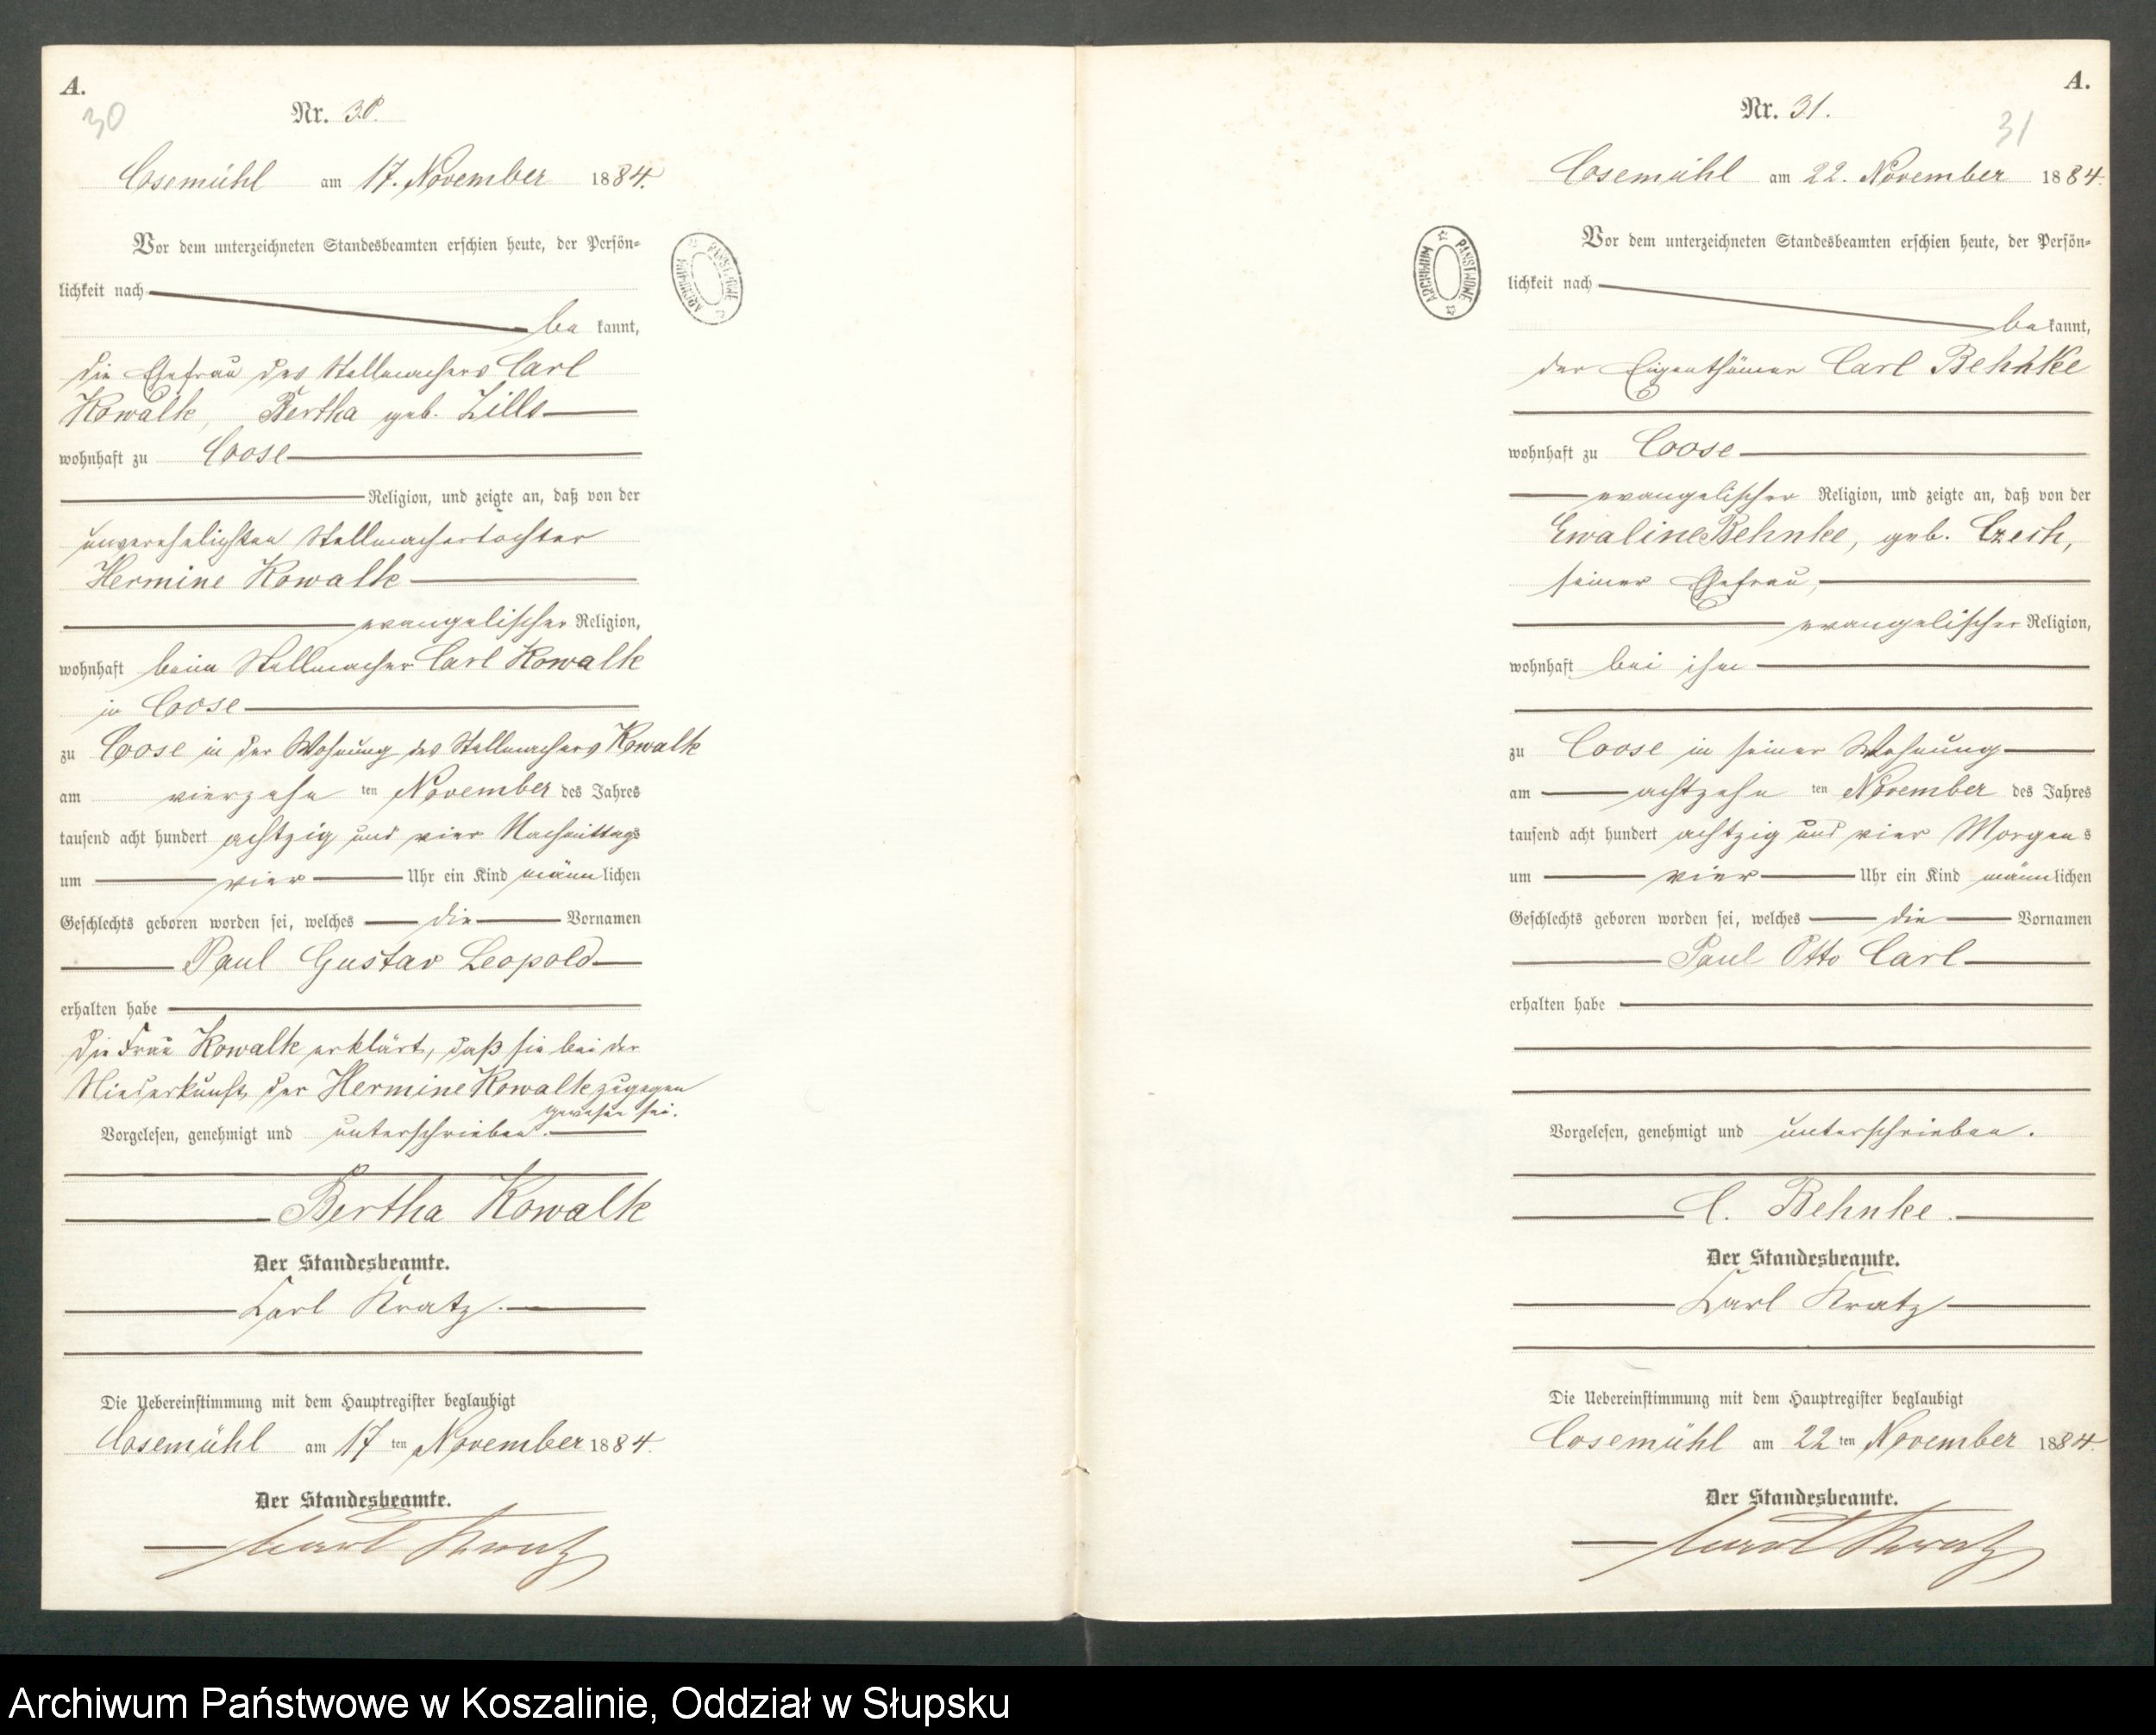 A.
30
Nr. 30.
Cosemühl am 17. November 1884.
Vor dem unterzeichneten Standesbeamten erschien heute, der Persön-
lichkeit nach
be kannt,
die Ehefrau des Stellmachers Carl
Kowalk, Bertha geb. Lills
wohnhaft zu Coose
Religion, und zeigte an, daß von der
unverehelichten Stellmachertochter
Hermine Kowalk
evangelischer Religion,
wohnhaft beim Stellmacher Carl Kowalk
in Coose
zu Coose in der Wohnung des Stellmachers Kowalk
am vierzehn ten November des Jahres
tausend acht hundert achtzig und vier Nachmittags
um vier Uhr ein Kind männlichen
Geschlechts geboren worden sei, welches die Vornamen
Paul Gustav Leopold
erhalten habe
Die Frau Kowalk erklärt, daß sie bei der
Niederkunft der Hermine Kowalk zugegen
gewesen sei.
Vorgelesen, genehmigt und unterschrieben.
Bertha Kowalk
Der Standesbeamte.
Carl Kratz.
Die Uebereinstimmung mit dem Hauptregister beglaubigt
Cosemühl am 17 ten November 1884.
Der Standesbeamte.
Carl Kratz
ARCHIWUM PAŃSTWOWE
A.
31
Nr. 31.
Cosemühl am 22. November 1884.
Vor dem unterzeichneten Standesbeamten erschien heute, der Persön-
lichkeit nach
be kannt,
der Eigenthümer Carl Behnke
wohnhaft zu Coose
evangelischer Religion, und zeigte an, daß von der
Ewaline Behnke, geb. Czech,
seiner Ehefrau,
evangelischer Religion,
wohnhaft bei ihm
zu Coose in seiner Wohnung
am achtzehn ten November des Jahres
tausend acht hundert achtzig und vier Morgens
um vier Uhr ein Kind männlichen
Geschlechts geboren worden sei, welches die Vornamen
Paul Otto Carl
erhalten habe
Vorgelesen, genehmigt und unterschrieben.
C. Behnke.
Der Standesbeamte.
Carl Kratz
Die Uebereinstimmung mit dem Hauptregister beglaubigt
Cosemühl am 22 ten November 1884.
Der Standesbeamte.
Carl Kratz
ARCHIWUM PAŃSTWOWE
Archiwum Państwowe w Koszalinie, Oddział w Słupsku